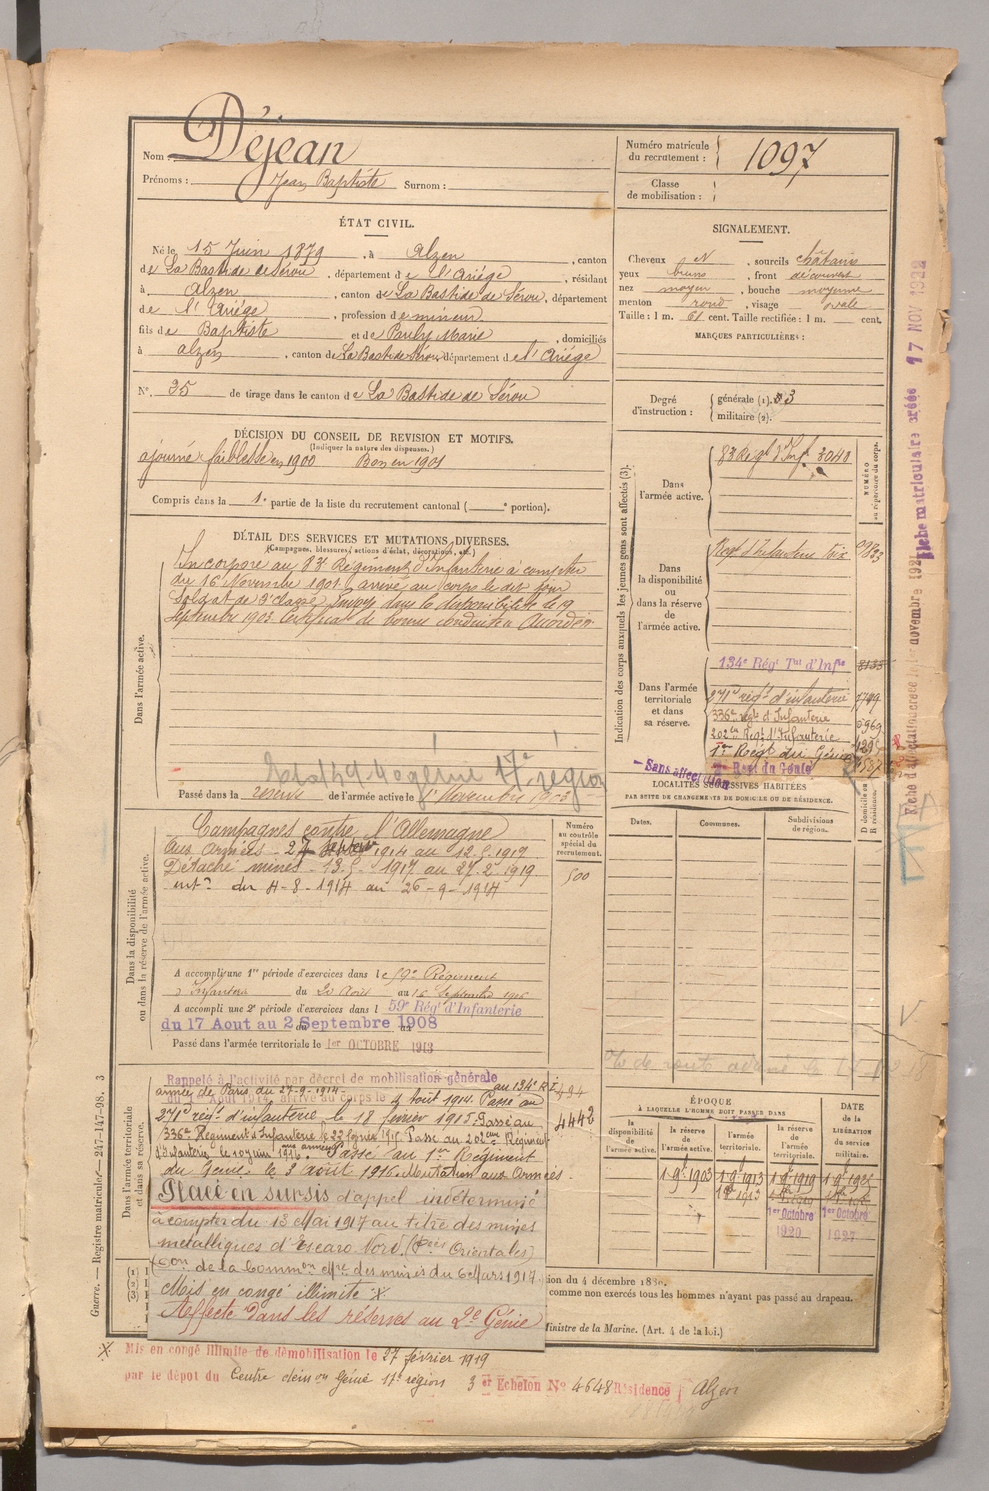 Nom : Déjean
Prénoms : Jean Baptiste Surnom :
Numéro matricule du recrutement : 1097
Classe de mobilisation :
ÉTAT CIVIL.
Né le 15 Juin 1879, à Alzen, canton
de La Bastide de Sérou, département de l'Ariège, résidant
à Alzen, canton de La Bastide de Sérou, département
de l'Ariège, profession de mineur
fils de Baptiste et de Pauly Marie, domiciliés
à Alzen, canton de La Bastide Sérou, département de l'Ariège
N° 25 de tirage dans le canton de La Bastide de Sérou
SIGNALEMENT.
Cheveux N, sourcils châtains
yeux bruns, front découvert
nez moyen, bouche moyenne
menton rond, visage ovale
Taille : 1 m. 61 cent. Taille rectifiée : 1 m. cent.
MARQUES PARTICULIÈRES :
Degré d'instruction : générale (1). 3
militaire (2).
DÉCISION DU CONSEIL DE REVISION ET MOTIFS.
(Indiquer la nature des dispenses.)
ajourné faiblesse en 1900 Bon en 1901
Compris dans la 1e partie de la liste du recrutement cantonal ( e portion).
DÉTAIL DES SERVICES ET MUTATIONS DIVERSES.
(Campagnes, blessures, actions d'éclat, décorations, etc.)
Dans l'armée active.
Incorporé au 83e Régiment d'Infanterie à compter
du 16 Novembre 1901. arrivé au corps le dit jour
Soldat de 2e classe, Envoyé dans la disponibilité le 19
Septembre 1903. Certificat de bonne conduite Accordé.
17e région
Passé dans la réserve de l'armée active le 1er Novembre 1903
Indication des corps auxquels les jeunes gens sont affectés (3).
NUMÉRO au répertoire du corps.
Dans l'armée active.
83 Régt d'Inf. 3048
Dans la disponibilité ou dans la réserve de l'armée active.
Regt d'Infanterie Foix
Dans l'armée territoriale et dans sa réserve.
134e Régt Tal d'Infie
271e régt d'infanterie
336e régt d'Infanterie
202e Regt d'Infanterie
1er Regt du Génie
2e Regt du Génie
Sans affectation
Fiche matriculaire créée 17 NOV 1922
LOCALITÉS SUCCESSIVES HABITÉES
PAR SUITE DE CHANGEMENTS DE DOMICILE OU DE RÉSIDENCE.
Dates. Communes. Subdivisions de région. D domicile ou R résidence.
Dans la disponibilité ou dans la réserve de l'armée active.
Numéro au contrôle spécial du recrutement.
500
Campagnes contre l'Allemagne
aux armées - 27 Septbre 1914 au 12-5-1917
Détaché mines - 13-5-1917 au 27-2-1919
intr du 4-8-1914 au 26-9-1914
A accompli une 1re période d'exercices dans le 59e Régiment
d'Infanterie du 20 Août au 16 Septembre
A accompli une 2e période d'exercices dans l 59e Régt d'Infanterie
du 17 Aout au 2 Septembre 1908
Passé dans l'armée territoriale le 1er OCTOBRE 1913
Dans l'armée territoriale et dans sa réserve.
Rappelé à l'activité par décret de mobilisation générale
armée de Paris du 27-9-1914 au 134e R.I.
du 1er Août 1914, arrivé au corps le 4 août 1914. Passé au
271e régt d'infanterie le 18 février 1915 Passé au
336e Régiment d'Infanterie le 22 février 1915 Passé au 202eme Régiment
d'Infanterie le 10 juin 1916. aux armées Passé au 1er Régiment
du Génie le 3 août 1916. Mutation aux Armées.
Placé en sursis d'appel indéterminé
à compter du 13 Mai 1917 au titre des mines
métalliques d'Escaro Nord. (Pées Orientales)
Con de la Common Mre des mines du 6 Mars 1917
Mis en congé illimité X
Affecté dans les réserves au 2e Génie
494
4442
ÉPOQUE
À LAQUELLE L'HOMME DOIT PASSER DANS
DATE de la LIBÉRATION du service militaire.
la disponibilité de l'armée active. la réserve de l'armée active. l'armée territoriale. la réserve de l'armée territoriale.
1 9bre 1903 1 9bre 1913 1 9bre 1919 1 9bre 1925
1er Octobre 1920 1er Octobre 1927
ion du 4 décembre 1889.
comme non exercés tous les hommes n'ayant pas passé au drapeau.
Ministre de la Marine. (Art. 4 de la loi.)
Guerre. — Registre matricule. — 247-147-98. 3
X Mis en congé illimité de démobilisation le 27 février 1919
par le dépôt du Centre démon Génie 17e région 3 er Echelon No 4648 Résidence Alzen